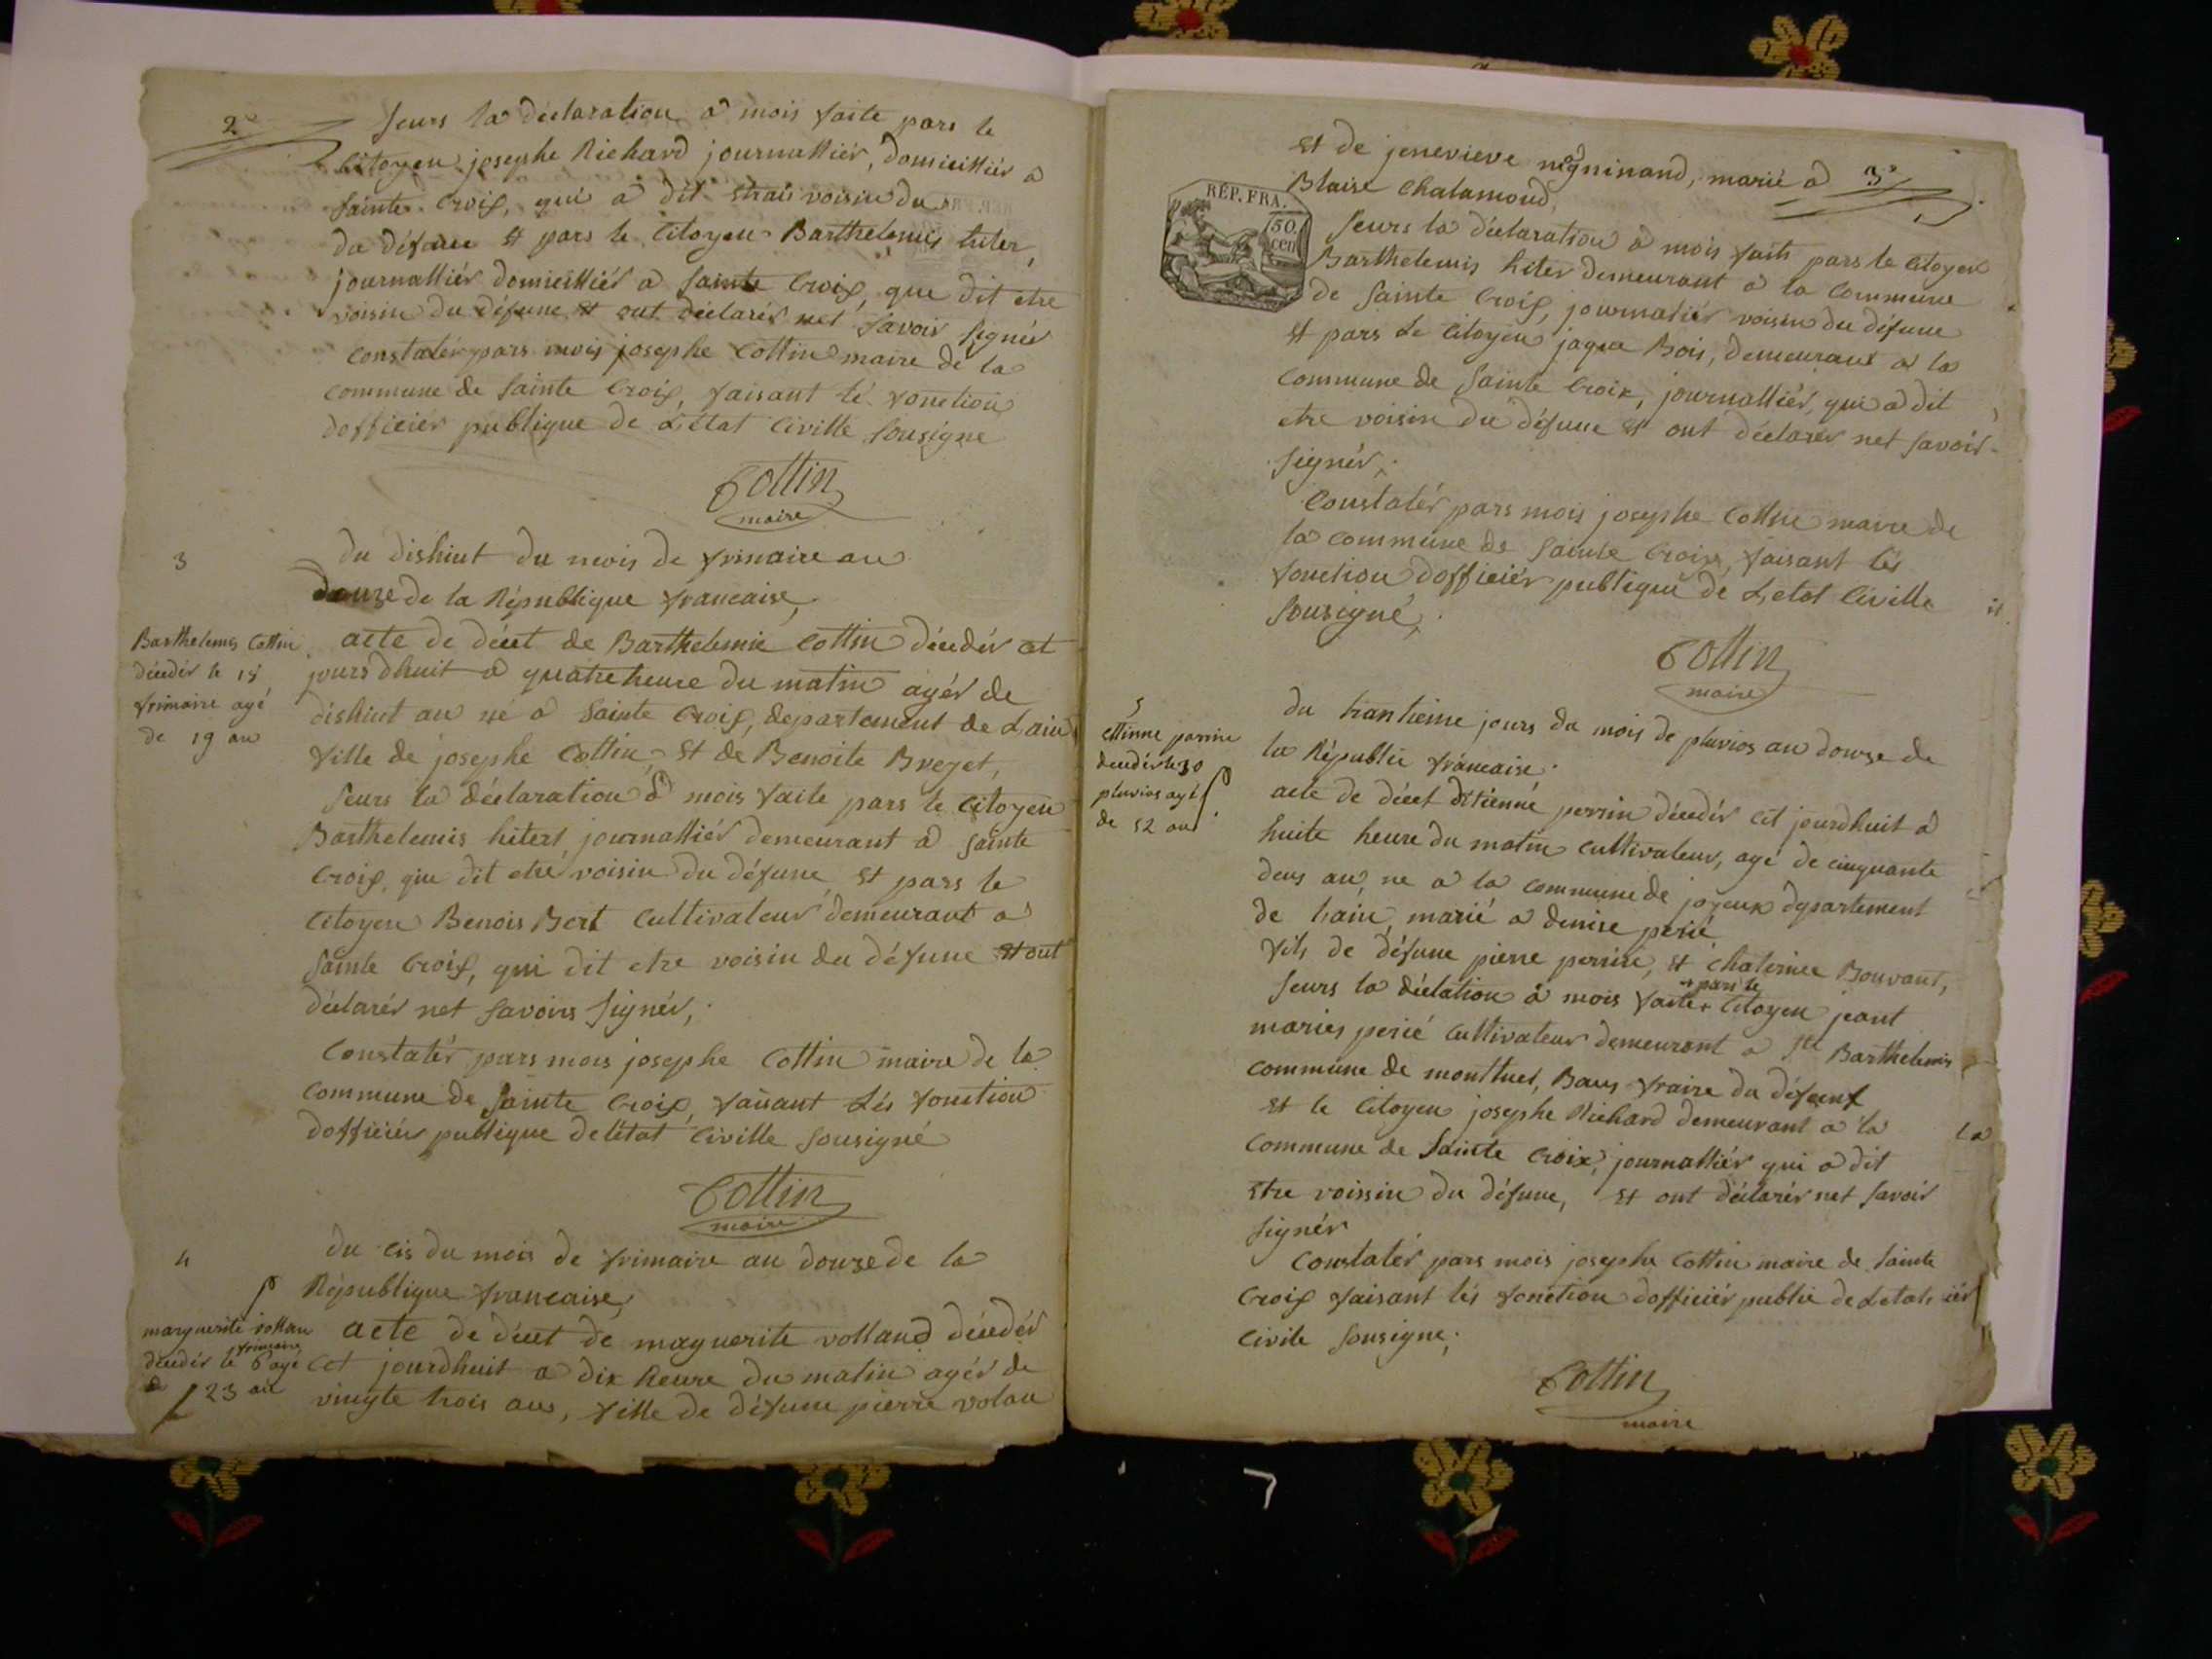 2e
seurs la déclaration a mois faite pars le
Citoyen josephe Richard journalliér, domicilliér a
sainte Croix, qui a dit etrai voisin du
du défune et pars le Citoyen Barthelemis hiter,
journalliér domicilliér a sainte Croix, que dit etre
voisin du défune et ont déclarér net savoir signér
Constatér pars mois josephe Cottin maire de la
commune de sainte Croix, faisant lé fonction
dofficiér publique de L'état Civille sousigne
Cottin
maire
3
du dishiut du mois de frimaire an
douze de la République francaise,
Barthelemis Cottin
décédér le 18
frimaire agé
de 19 an
acte de décet de Barthelemie Cottin décédér cet
jours dhuit a quatre heure du matin agér de
dishiut an né a sainte Croix, departement de Lain
fille de josephe Cottin, et de Benoite Breget,
seurs la déclaration a mois faite pars le Citoyen
Barthelemis hitert, journalliér demeurant a sainte
Croix, que dit etre voisin du défune et pars le
Citoyen Benois Bert Cultivateur demeurant a
sainte Croix, qui dit etre voisin du défune et ont
déclarér net savoirs signér,
Constatér pars mois josephe Cottin maire de la
Commune de sainte Croix, faisant Lés fonction
dofficiér publique de létat Civille sousigné
Cottin
maire
4
du cis du mois de frimaire an douze de la
République francaise,
marguerite vollan
décédér le 6 frimaire agé
de 23 an
acte de décet de maguerite volland décédér
cet jourdhuit a dix heure du matin agér de
vingte trois an, fille de défune pierre volan
3e
et de jenevieve, marié a
Blaise Chalamond,
RÉP. FRA.
50
cen
seurs la déclaration a mois faite pars le Citoyen
Barthelemis hiter demeurant a la Commune
de sainte Croix, journaliér voisin du défune
et pars Le Citoyen jaque Bois, demeurant a la
Commune de sainte Croix, journalliér, que a dit
etre voisin du défune et ont déclarér net savoir
signér,
Constatér pars mois josephe Cottin maire de
la commune de sainte Croix, faisant lés
fonction dofficiér publique de L'etat Civille
sousigné,
Cottin
maire
5
ettinne perrin
décédér le 30
pluvios agé
de 52 an
du trantieme jours du mois de pluvios an douze de
la Républic francaise.
acte de décet détienné perrin décédér cet jourdhuit a
huite heure du matin cultivateur, agé de cinquante
deus an, ne a la commune de joyeux département
de Lain, marié a denise perié
fils de défune pierre perrin, et Chaterine Bouvant,
seurs la déclation a mois faite + pars le Citoyen jeant
maries perié Cultivateur demeurant a ste Barthelemis
commune de montluel, Baux fraire du défunt
et le Citoyen josephe Richard demeurant a la
Commune de sainte Croix, journalliér qui a dit
etre voissin du défune, et ont déclarér net savoir
signér
Constatér pars mois josephe Cottin maire de sainte
Croix faisant lés fonction dofficiér public de Letat
Civile sousigne,
Cottin
maire